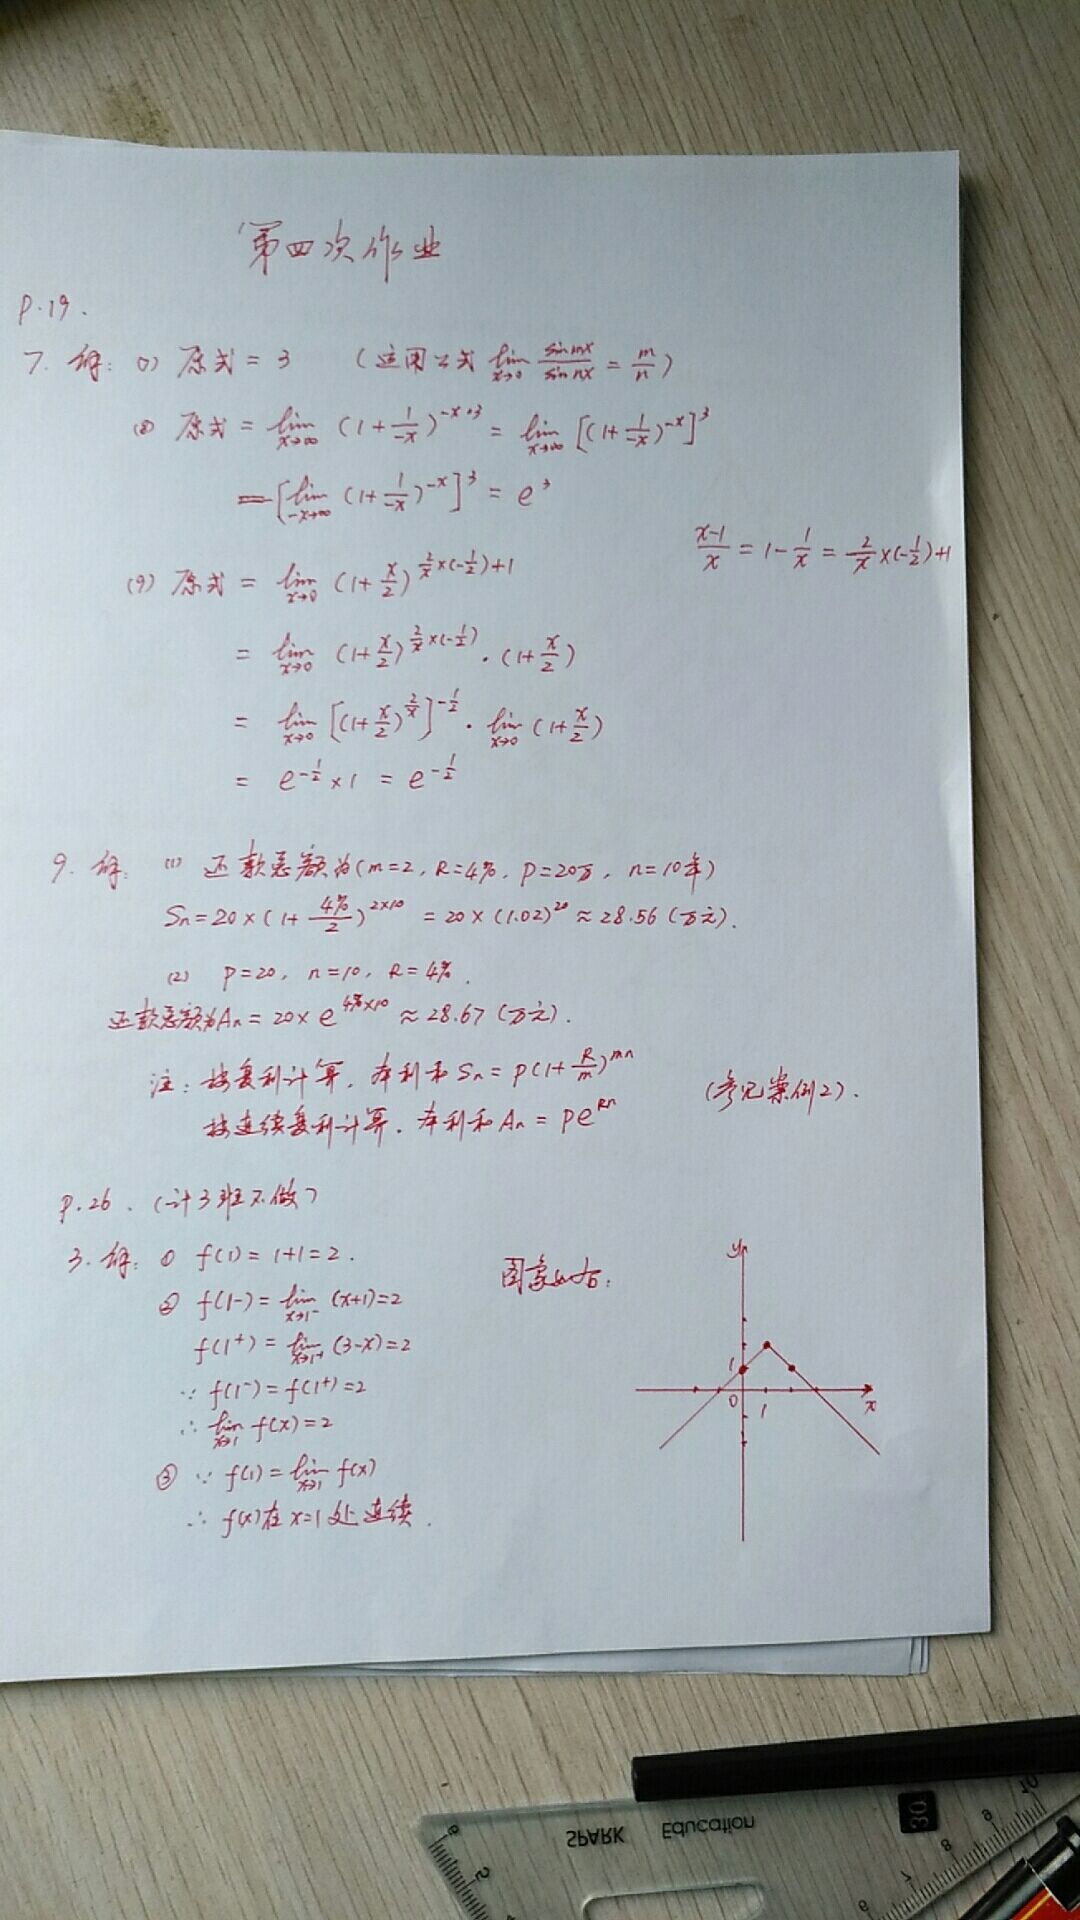 第四次作业
P.19.
7. 解: (1) 原式 = 3 (运用公式 lim x→0 sin mx / sin nx = m/n)
(8) 原式 = lim x→∞ (1+1/-x)^(-x·3) = lim x→∞ [(1+1/-x)^(-x)]^3
= [lim -x→∞ (1+1/-x)^(-x)]^3 = e^3
(9) 原式 = lim x→0 (1+x/2)^(2/x×(-1/2)+1)
(x-1)/x = 1-1/x = 2/x×(-1/2)+1
= lim x→0 (1+x/2)^(2/x×(-1/2)) · (1+x/2)
= lim x→0 [(1+x/2)^(2/x)]^(-1/2) · lim x→0 (1+x/2)
= e^(-1/2) × 1 = e^(-1/2)
9. 解: (1) 还款总额为(m=2, R=4%, P=20万, n=10年)
Sn=20×(1+4%/2)^(2×10) = 20×(1.02)^20 ≈28.56 (万元).
(2) P=20, n=10, R=4%.
还款总额为An = 20×e^(4%×10) ≈28.67 (万元).
注: 按复利计算, 本利和 Sn = P(1+R/m)^(mn)
按连续复利计算, 本利和 An = Pe^(Rn)
(参见案例2).
P.26. (计3班不做)
3. 解: ① f(1) = 1+1=2.
② f(1-) = lim x→1- (x+1)=2
f(1+) = lim x→1+ (3-x)=2
∵ f(1-)=f(1+)=2
∴ lim x→1 f(x)=2
③ ∵ f(1)=lim x→1 f(x)
∴ f(x)在x=1处连续.
图象如右:
y
1
0
1
x
SPARK Education
30
10
9
8
7
6